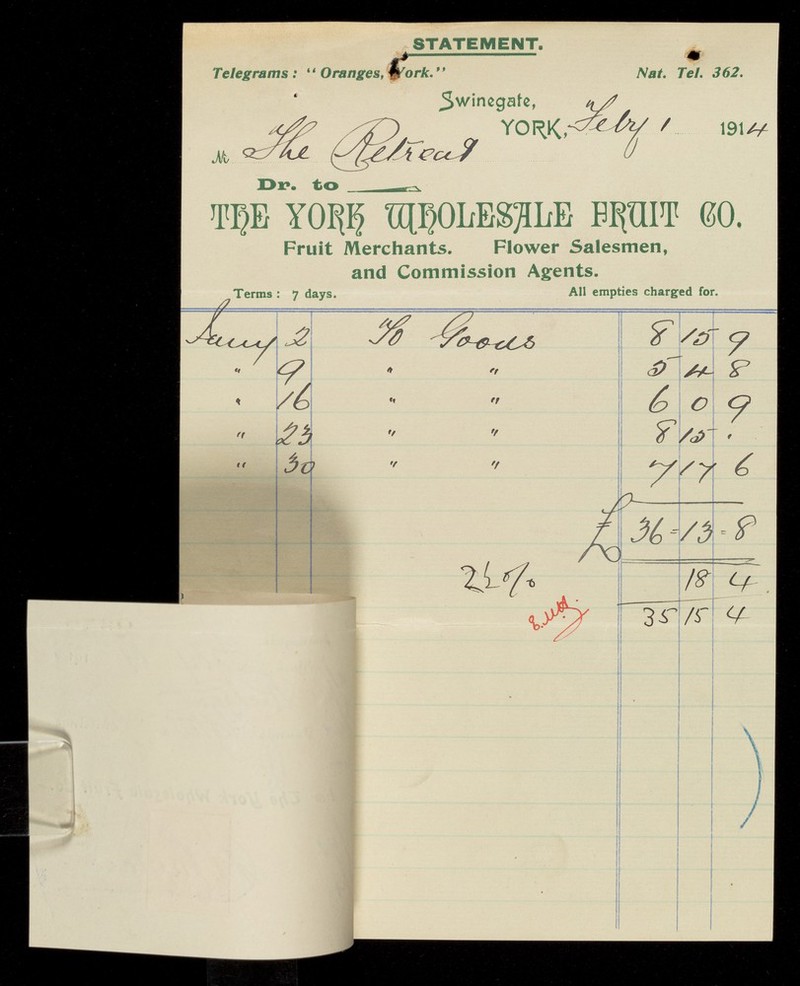 STATEMENT.
Telegrams: "Oranges, York." Nat. Tel. 362.
Swinegate,
YORK, Feby 1 1914
M The Retreat
Dr. to
THE YORK WHOLESALE FRUIT CO.
Fruit Merchants. Flower Salesmen,
and Commission Agents.
Terms: 7 days. All empties charged for.
Jany 2 To Goods 8 15 9
" 9 " " 5 4 8
" 16 " " 6 0 9
" 23 " " 8 15 .
" 30 " " 7 17 6
£ 36 = 13 = 8
2½ % 18 4
35 15 4